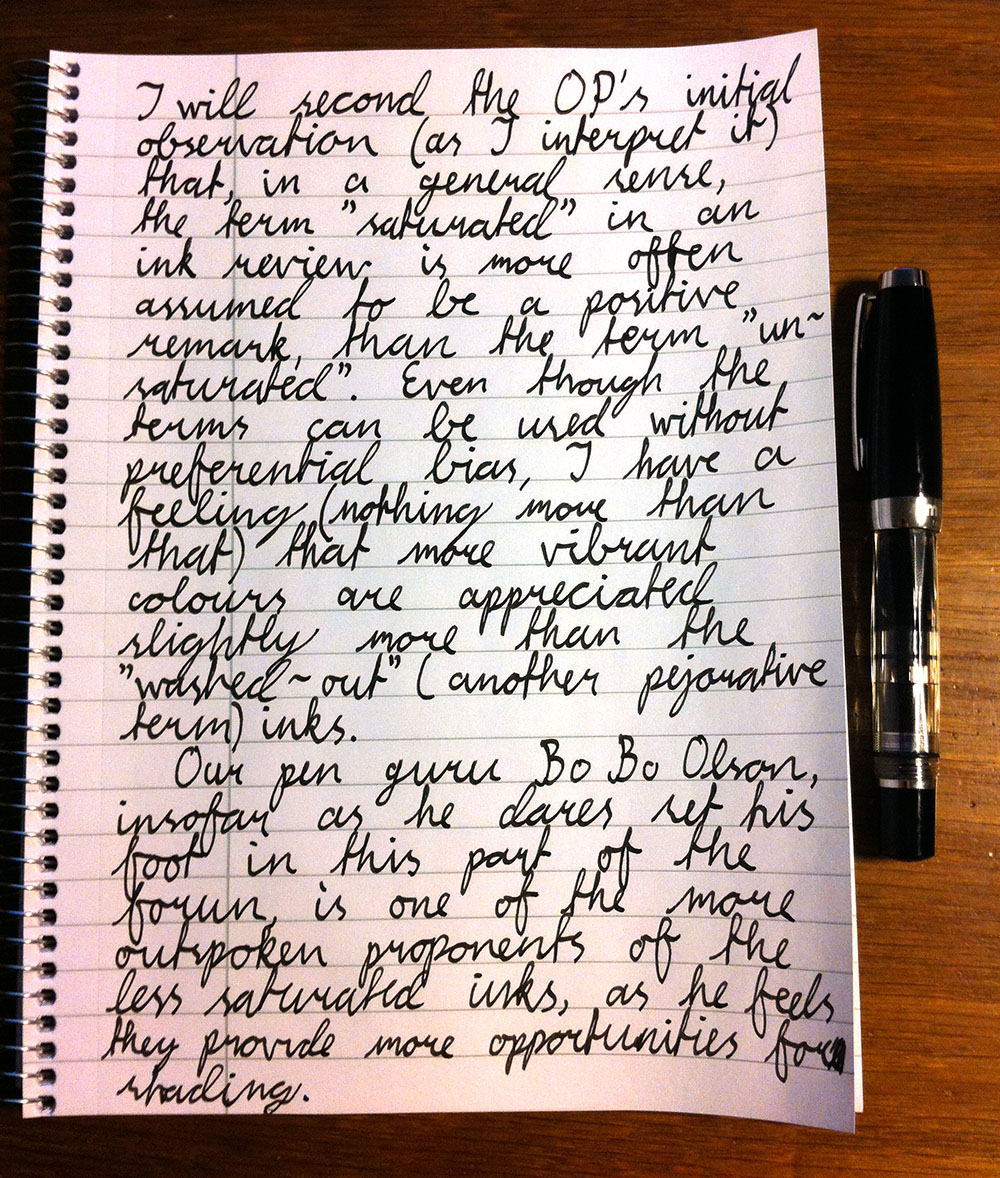 I will second the OP's initial
observation (as I interpret it)
that, in a general sense,
the term "saturated" in an
ink review is more often
assumed to be a positive
remark, than the term "un~
saturated". Even though the
terms can be used without
preferential bias, I have a
feeling (nothing more than
that) that more vibrant
colours are appreciated
slightly more than the
"washed~out" (another pejorative
term) inks.
Our pen guru Bo Bo Olson,
insofar as he dares set his
foot in this part of the
forun, is one of the more
outspoken proponents of the
less saturated inks, as he feels
they provide more opportunities for
shading.